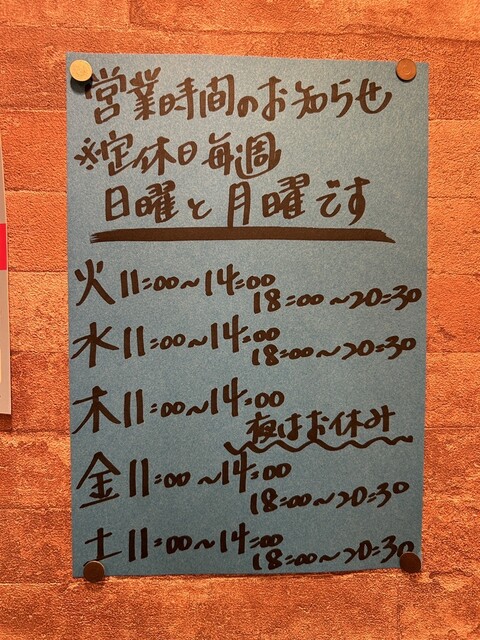 営業時間のお知らせ
※定休日毎週
日曜と月曜です
火 11:00～14:00
18:00～20:30
水 11:00～14:00
18:00～20:30
木 11:00～14:00
夜はお休み
金 11:00～14:00
18:00～20:30
土 11:00～14:00
18:00～20:30